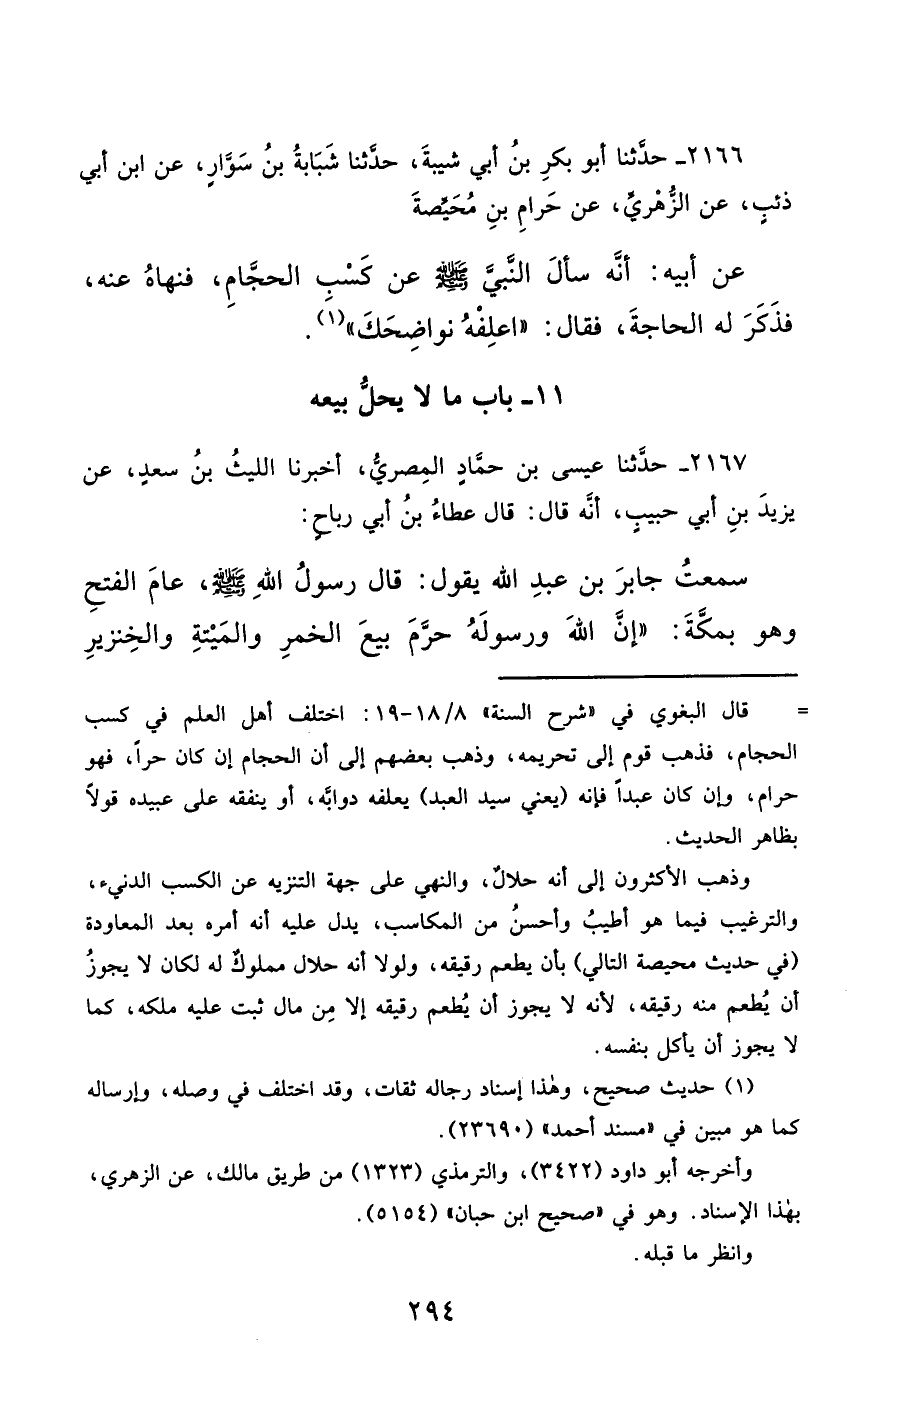 ٢١٦٦ـ حدَّثنا أبو بكرِ بنُ أبي شيبةَ، حدَّثنا شَبَابةُ بنُ سَوَّارٍ، عن ابن أبي
ذئبٍ، عن الزُّهْريِّ، عن حَرامِ بنِ مُحَيِّصةَ
عن أبيه: أنَّه سألَ النَّبيَّ ﷺ عن كَسْبِ الحجَّامِ، فنهاهُ عنه،
فذَكَرَ له الحاجةَ، فقال: «اعلِفْهُ نواضِحَكَ»(١).
١١ـ باب ما لا يحلُّ بيعه
٢١٦٧ـ حدَّثنا عيسى بن حمَّادٍ المِصريُّ، أخبرنا الليثُ بنُ سعدٍ، عن
يزيدَ بنِ أبي حبيبٍ، أنَّه قال: قال عطاءُ بنُ أبي رباحٍ:
سمعتُ جابرَ بن عبدِ الله يقول: قال رسولُ اللهِ ﷺ، عامَ الفتحِ
وهو بمكَّةَ: «إنَّ اللهَ ورسولَهُ حرَّمَ بيعَ الخمرِ والمَيْتةِ والخِنزيرِ
= قال البغوي في «شرح السنة» ٨/ ١٨-١٩: اختلف أهل العلم في كسب
الحجام، فذهب قوم إلى تحريمه، وذهب بعضهم إلى أن الحجام إن كان حراً، فهو
حرام، وإن كان عبداً فإنه (يعني سيد العبد) يعلفه دوابَّه، أو ينفقه على عبيده قولاً
بظاهر الحديث.
وذهب الأكثرون إلى أنه حلالٌ، والنهي على جهة التنزيه عن الكسب الدنيء،
والترغيب فيما هو أطيبُ وأحسنُ من المكاسب، يدل عليه أنه أمره بعد المعاودة
(في حديث محيصة التالي) بأن يطعم رقيقه، ولولا أنه حلال مملوكٌ له لكان لا يجوزُ
أن يُطعم منه رقيقه، لأنه لا يجوز أن يُطعم رقيقه إلا مِن مال ثبت عليه ملكه، كما
لا يجوز أن يأكل بنفسه.
(١) حديث صحيح، وهٰذا إسناد رجاله ثقات، وقد اختلف في وصله، وإرساله
كما هو مبين في «مسند أحمد» (٢٣٦٩٠).
وأخرجه أبو داود (٣٤٢٢)، والترمذي (١٣٢٣) من طريق مالك، عن الزهري،
بهٰذا الإسناد. وهو في «صحيح ابن حبان» (٥١٥٤).
وانظر ما قبله.
٢٩٤